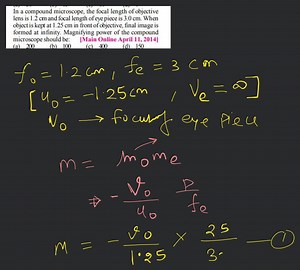 In a compound microscope, the focal length of objective
lens is 1.2 cm and focal length of eye piece is 3.0 cm. When
object is kept at 1.25 cm in front of objective, final image is
formed at infinity. Magnifying power of the compound
microscope should be: [Main Online April 11, 2014]
(a) 200 (b) 100 (c) 400 (d) 150
f₀ = 1.2 cm, fe = 3 cm
[u₀ = -1.25 cm, Ve = ∞]
V₀ → focus of eye piece
m = m₀ me
⇒ - V₀/u₀ D/fe
M = - V₀/1.25 × 25/3 — ①